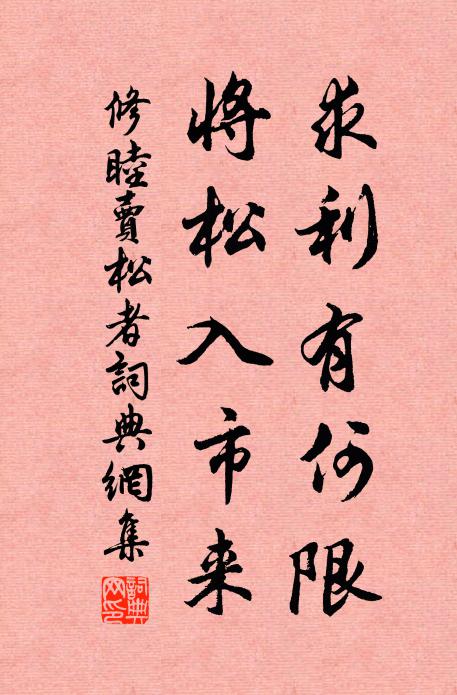 求利有何限
将松入市来
修睦賣松者詞典網集
詞典网印